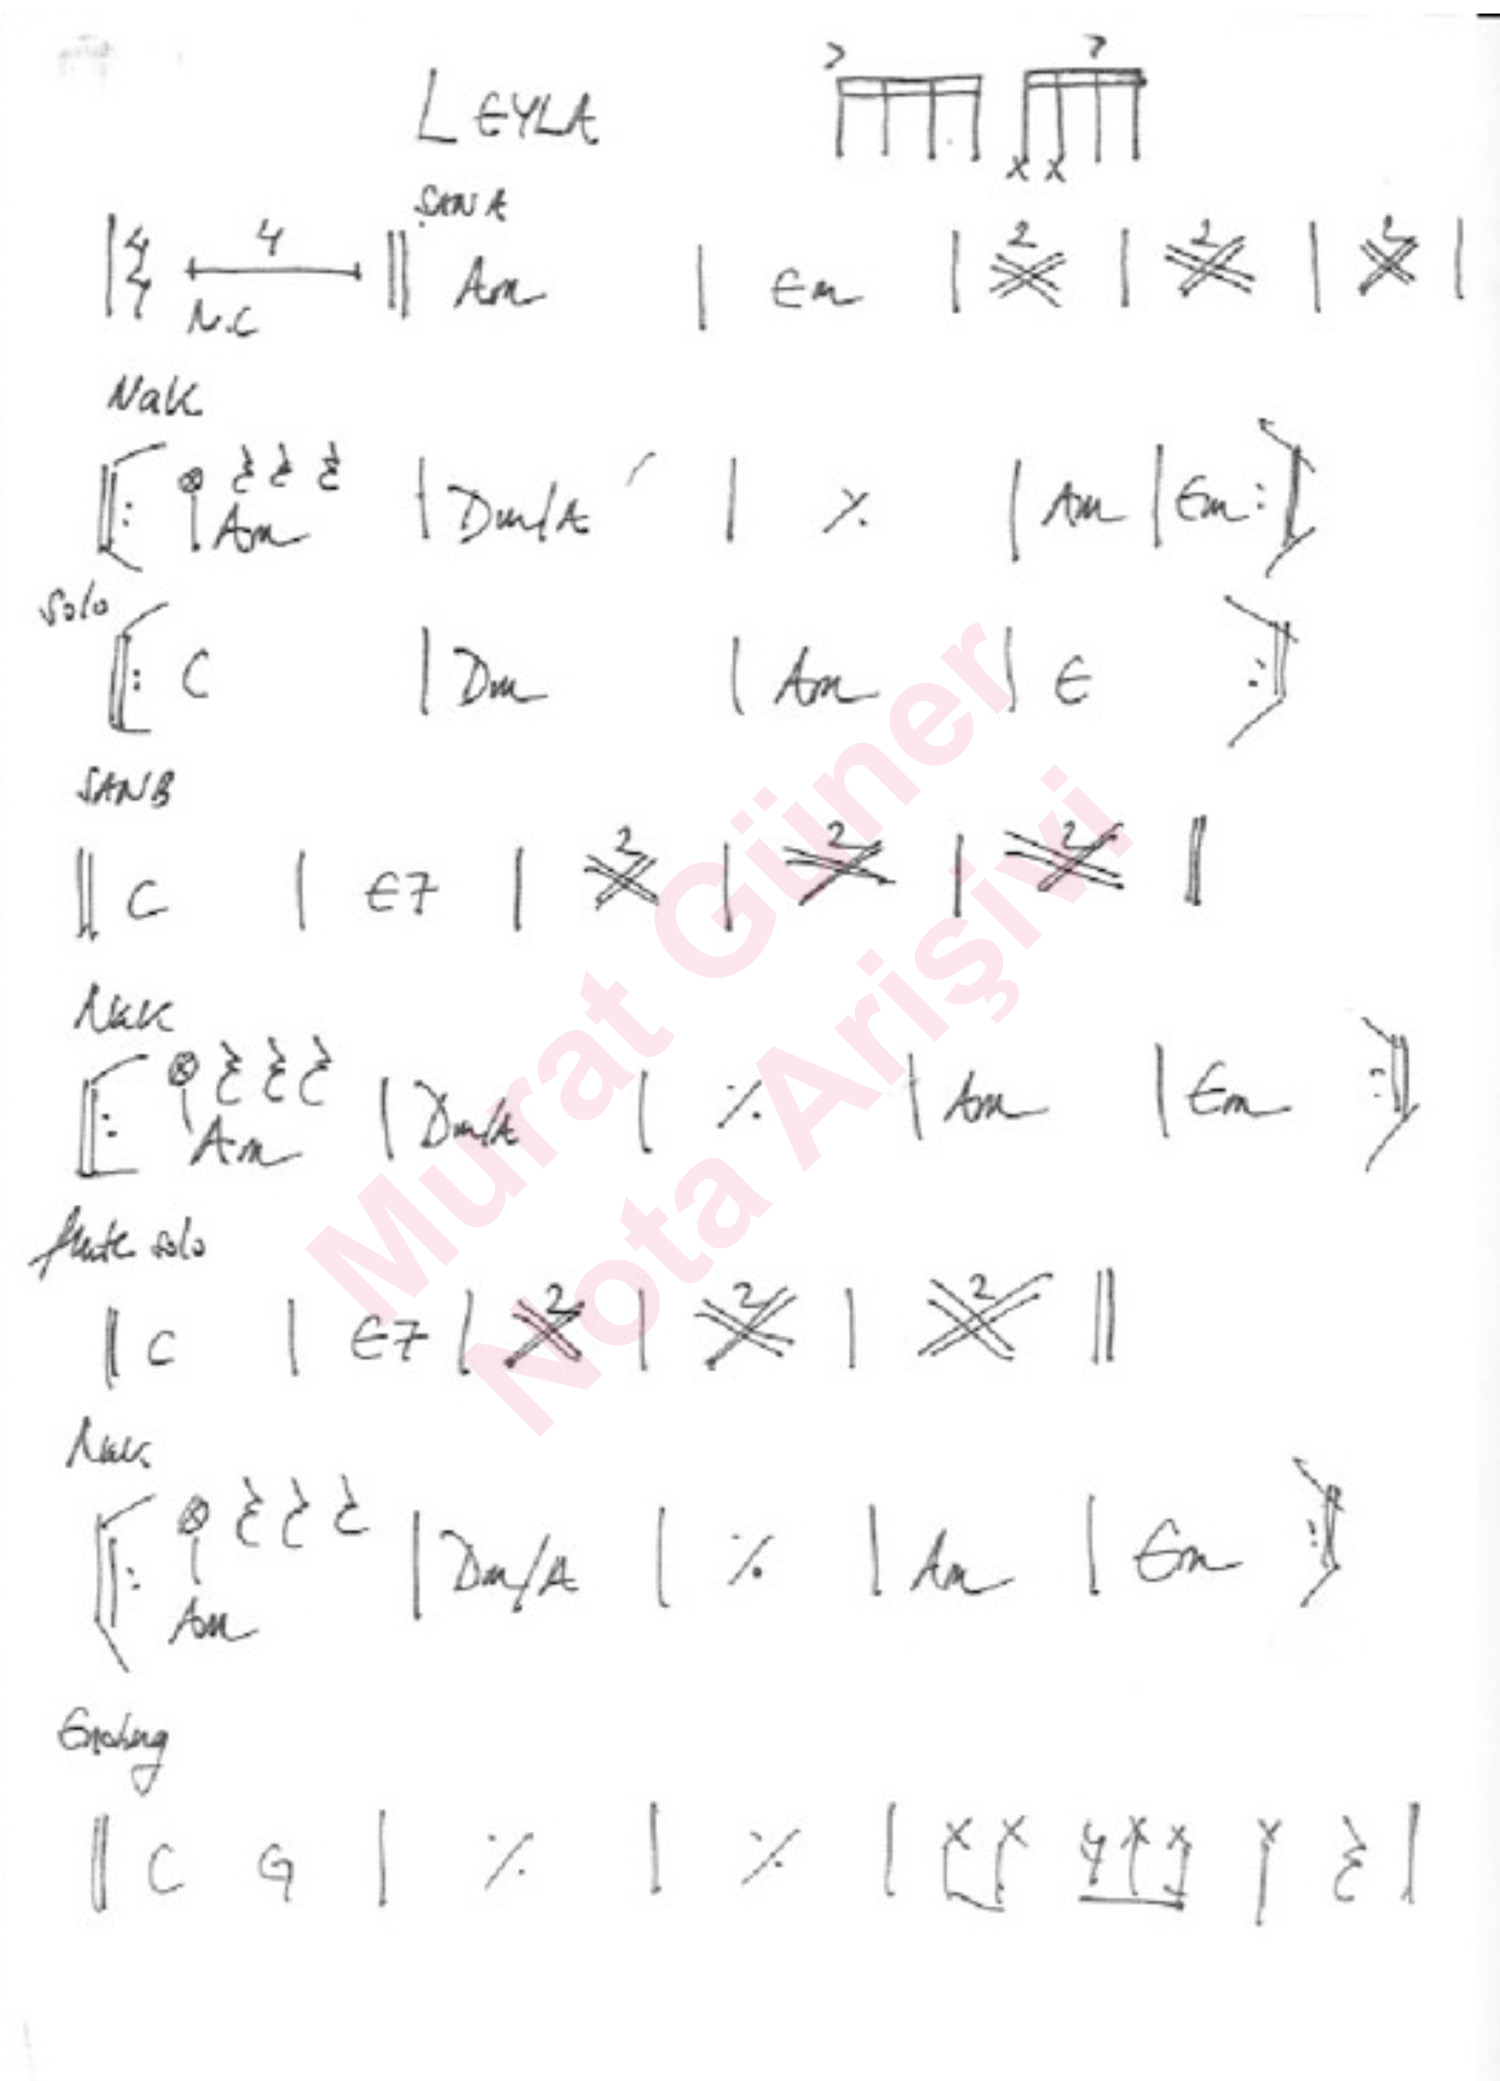 LEYLA
SAN A
4/4 4 N.C Am Em 2 2 2
Nak
Am Dm/A % Am Em
Solo
C Dm Am E
SAN B
C E7 2 2 2
Nak
Am Dm/A % Am Em
flute solo
C E7 2 2 2
Nak
Am Dm/A % Am Em
Ending
C G % %
Murat Güner
Nota Arişivi